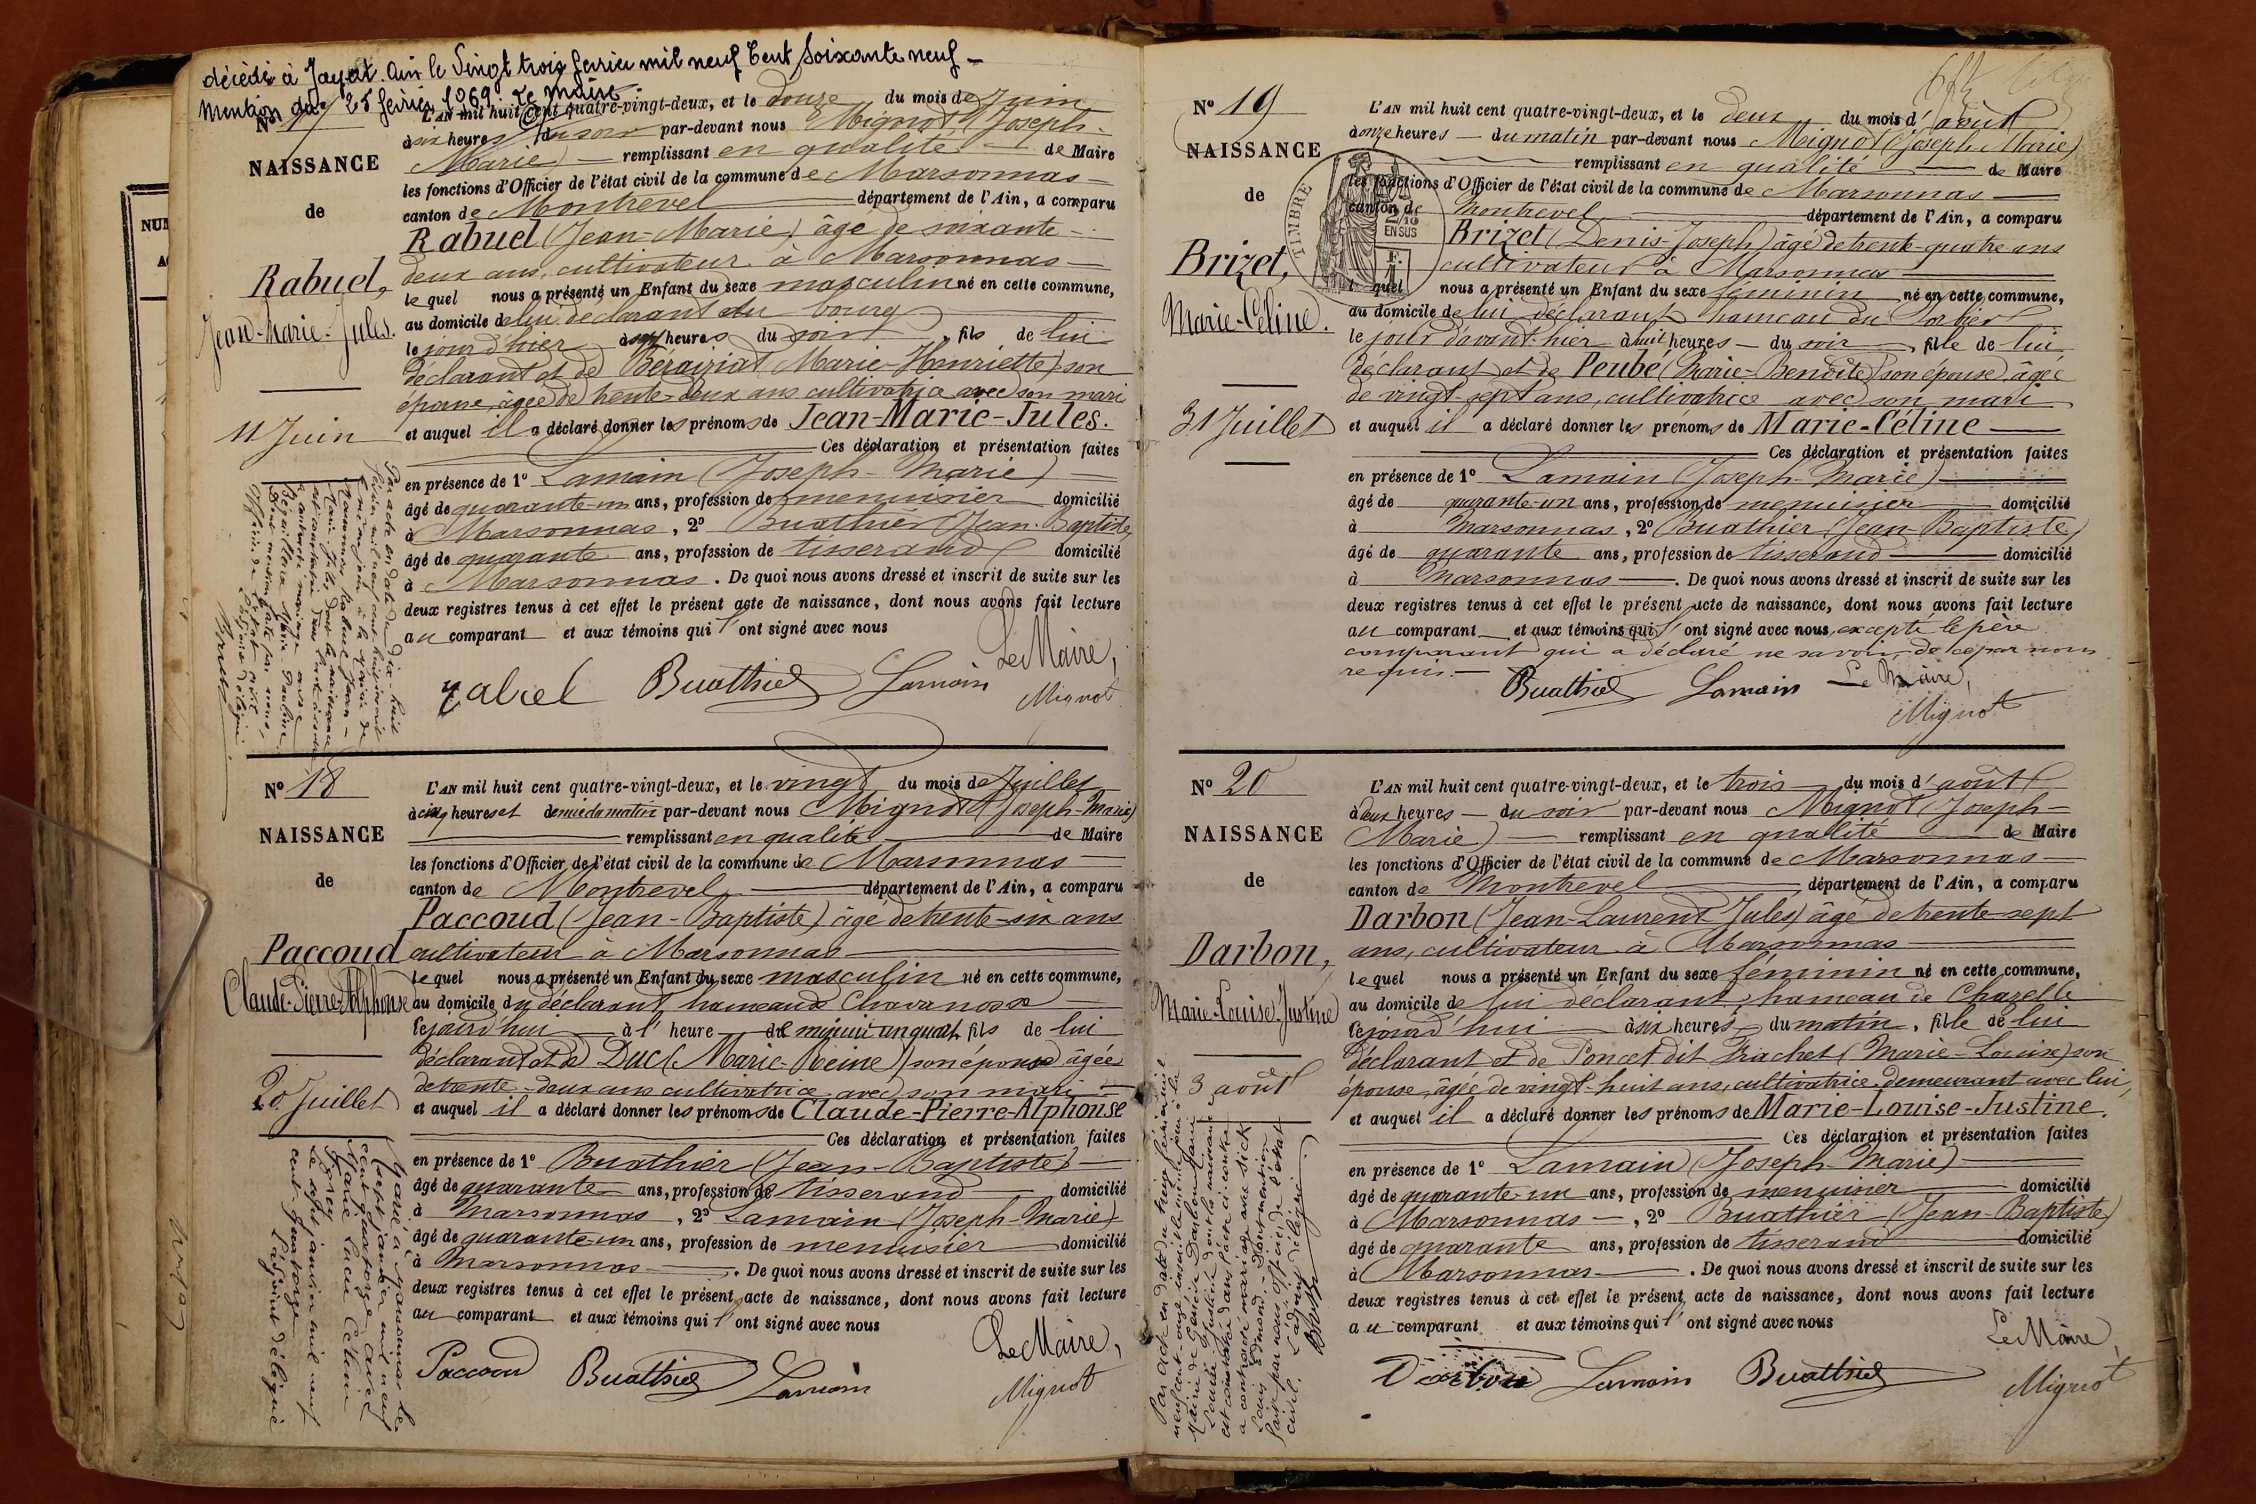 décédé à Jayat. Ain le Vingt trois février mil neuf Cent Soixante neuf –
Mention du 25 février 1969. Le Maire.
N° 17
NAISSANCE
de
Rabuel,
Jean-Marie-Jules.
11 Juin
L'AN mil huit cent quatre-vingt-deux, et le douze du mois de Juin
à six heures du soir par-devant nous Mignot (Joseph-
Marie) remplissant en qualité de Maire
les fonctions d'Officier de l'état civil de la commune de Marsonnas
canton de Montrevel département de l'Ain, a comparu
Rabuel (Jean-Marie) âgé de soixante-
deux ans, cultivateur à Marsonnas
le quel nous a présenté un Enfant du sexe masculin né en cette commune,
au domicile de lui déclarant au bourg
le jour d'hier à heures du soir fils de lui
déclarant et de Bérairiat (Marie-Henriette) son
épouse, âgée de trente-deux ans cultivatrice avec son mari
et auquel il a déclaré donner les prénoms de Jean-Marie-Jules.
Ces déclaration et présentation faites
en présence de 1° Lamain (Joseph-Marie)
âgé de quarante-un ans, profession de menuisier domicilié
à Marsonnas, 2° Buathier (Jean-Baptiste)
âgé de quarante ans, profession de tisserand domicilié
à Marsonnas. De quoi nous avons dressé et inscrit de suite sur les
deux registres tenus à cet effet le présent acte de naissance, dont nous avons fait lecture
au comparant et aux témoins qui l'ont signé avec nous
Le Maire,
Rabuel Buathier Lamain Mignot
Par acte en date du dix-huit
N° 18
NAISSANCE
de
Paccoud
Claude-Pierre-Alphonse
20 Juillet
L'AN mil huit cent quatre-vingt-deux, et le vingt du mois de Juillet
à cinq heures et demie du matin par-devant nous Mignot (Joseph-Marie)
remplissant en qualité de Maire
les fonctions d'Officier de l'état civil de la commune de Marsonnas
canton de Montrevel département de l'Ain, a comparu
Paccoud (Jean-Baptiste) âgé de trente-six ans
cultivateur à Marsonnas
le quel nous a présenté un Enfant du sexe masculin né en cette commune,
au domicile du déclarant hameau de Chavanosse
le jourd'hui à l'heure de minuit un quart fils de lui
déclarant et de Duc (Marie-Reine) son épouse âgée
de trente-deux ans cultivatrice avec son mari
et auquel il a déclaré donner les prénoms de Claude-Pierre-Alphonse
Ces déclaration et présentation faites
en présence de 1° Buathier (Jean-Baptiste)
âgé de quarante ans, profession de tisserand domicilié
à Marsonnas, 2° Lamain (Joseph-Marie)
âgé de quarante-un ans, profession de menuisier domicilié
à Marsonnas. De quoi nous avons dressé et inscrit de suite sur les
deux registres tenus à cet effet le présent acte de naissance, dont nous avons fait lecture
au comparant et aux témoins qui l'ont signé avec nous
Le Maire,
Paccoud Buathier Lamain Mignot
Marié à Marsonnas le
sept janvier mil neuf
cent quatorze avec
Marie Lucie Célina
Le sept janvier mil neuf
cent quatorze
l'adjoint délégué
N° 19
NAISSANCE
de
Brizet,
Marie-Céline.
31 Juillet
TIMBRE
2/10
EN SUS
L'AN mil huit cent quatre-vingt-deux, et le deux du mois d'août
à onze heures du matin par-devant nous Mignot (Joseph Marie)
remplissant en qualité de Maire
les fonctions d'Officier de l'état civil de la commune de Marsonnas
canton de Montrevel département de l'Ain, a comparu
Brizet (Denis-Joseph) âgé de trente-quatre ans
cultivateur à Marsonnas
le quel nous a présenté un Enfant du sexe féminin né en cette commune,
au domicile de lui déclarant hameau du Sorbier
le jour d'avant-hier à huit heures du soir, fille de lui
déclarant et de Peubé (Marie-Benoîte) son épouse, âgée
de vingt-sept ans, cultivatrice avec son mari
et auquel il a déclaré donner les prénoms de Marie-Céline
Ces déclaration et présentation faites
en présence de 1° Lamain (Joseph-Marie)
âgé de quarante-un ans, profession de menuisier domicilié
à Marsonnas, 2° Buathier (Jean-Baptiste)
âgé de quarante ans, profession de tisserand domicilié
à Marsonnas. De quoi nous avons dressé et inscrit de suite sur les
deux registres tenus à cet effet le présent acte de naissance, dont nous avons fait lecture
au comparant et aux témoins qui l'ont signé avec nous, excepté le père
comparant qui a déclaré ne savoir, de ce par nous
requis.
Buathier Lamain Le Maire,
Mignot
N° 20
NAISSANCE
de
Darbon,
Marie-Louise-Justine
3 août
L'AN mil huit cent quatre-vingt-deux, et le trois du mois d'août
à deux heures du soir par-devant nous Mignot (Joseph-
Marie) remplissant en qualité de Maire
les fonctions d'Officier de l'état civil de la commune de Marsonnas
canton de Montrevel département de l'Ain, a comparu
Darbon (Jean-Laurent Jules) âgé de trente-sept
ans, cultivateur à Marsonnas
le quel nous a présenté un Enfant du sexe féminin né en cette commune,
au domicile de lui déclarant, hameau de Charelle
le jourd'hui à six heures du matin, fille de lui
déclarant et de Poncet dit Frachet (Marie-Louise) son
épouse, âgée de vingt-huit ans, cultivatrice demeurant avec lui,
et auquel il a déclaré donner les prénoms de Marie-Louise-Justine.
Ces déclaration et présentation faites
en présence de 1° Lamain (Joseph-Marie)
âgé de quarante-un ans, profession de menuisier domicilié
à Marsonnas, 2° Buathier (Jean-Baptiste)
âgé de quarante ans, profession de tisserand domicilié
à Marsonnas. De quoi nous avons dressé et inscrit de suite sur les
deux registres tenus à cet effet le présent acte de naissance, dont nous avons fait lecture
au comparant et aux témoins qui l'ont signé avec nous
Le Maire,
Darbon Lamain Buathier Mignot